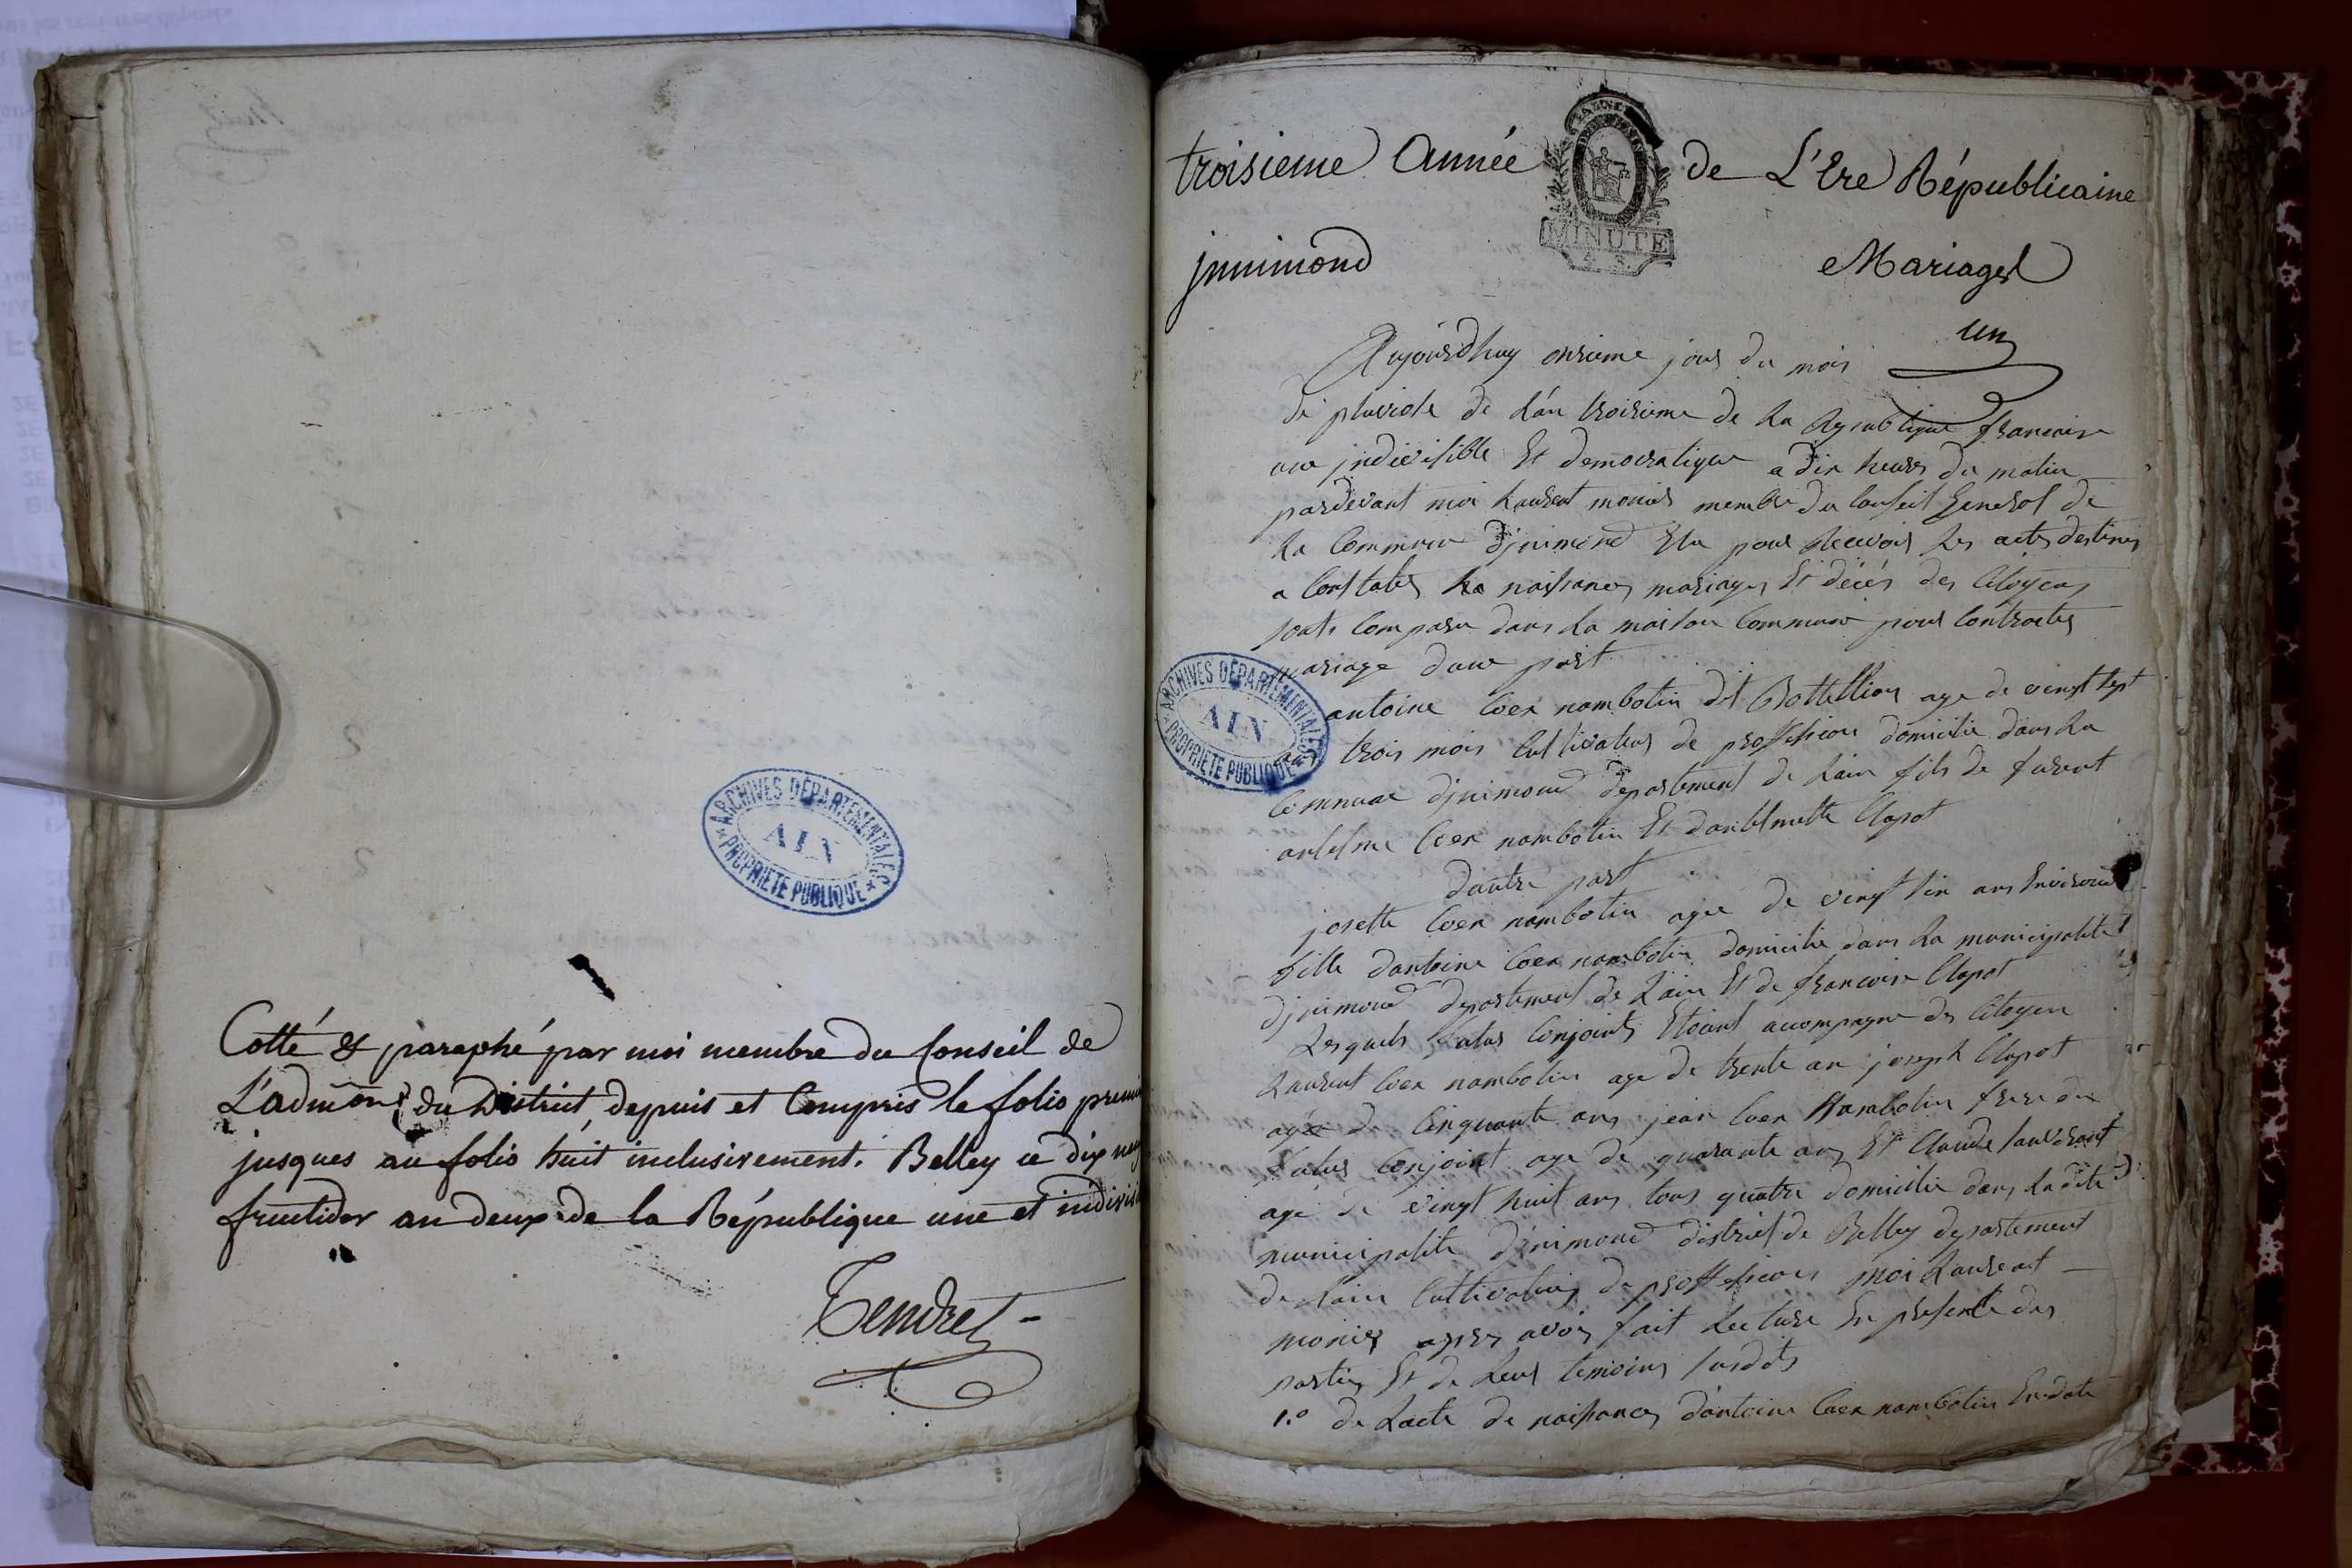 Cotté & paraphé par moi membre du Conseil de
L'admõn du District, depuis et Compris le folio premi
jusques au folio huit inclusivement. Belley ce dix neu
fructidor an deux de la République une et indivisi
Tendret
ARCHIVES DÉPARTEMENTALES
AIN
PROPRIETE PUBLIQUE
troisieme Année de L'Ere Républicaine
MINUTE
jnnimond Mariages
un
Aujourdhuy onsieme jour du mois
de pluviose de L'an troisieme de La Republique francaise
une jndivisible Et democratique a dix heures du matin
pardevant moi Laurent monier membre du Conseil General de
La Commune djnimond Elu pour Recevoir Les actes destines
a Constater La naissances mariages Et décés des Citoyens
sont Comparu dans La maison Commune pour Contracter
mariage dune part
antoine Coex nambotin dit Bottillion age de vingt sept
ans trois mois Cultivateur de proffession domicilie dans La
Commune djnimond departement de Lain fils de furent
antelme Coex nambotin Et danthelmette Clapot
dautre part
josette Coex nambotin agee de vingt six ans Environ
fille dantoine Coex nambotin domicilie dans La municipalite
djnimond departement de Lain Et de francoise Clapot
Lesquels futurs Conjoints Etoient accompagne des Citoyens
Laurent Coex nambotin age de trente an joseph Clapot
agé de Cinquante ans jean Coex Nambotin frere du
futur Conjoint age de quarante ans Et Claude
agé de vingt huit ans tous quatre domicilie dans Ladite
municipalite djnimond district de Belley departement
de Lain Cultivateurs de proffession moi Laurent
monier apres avoir fait Lecture En presence des
parties Et de Leurs temoins susdits
1.º de Lacte de naissances dantoine Coex nambotin En date
ARCHIVES DÉPARTEMENTALES
AIN
PROPRIETE PUBLIQUE